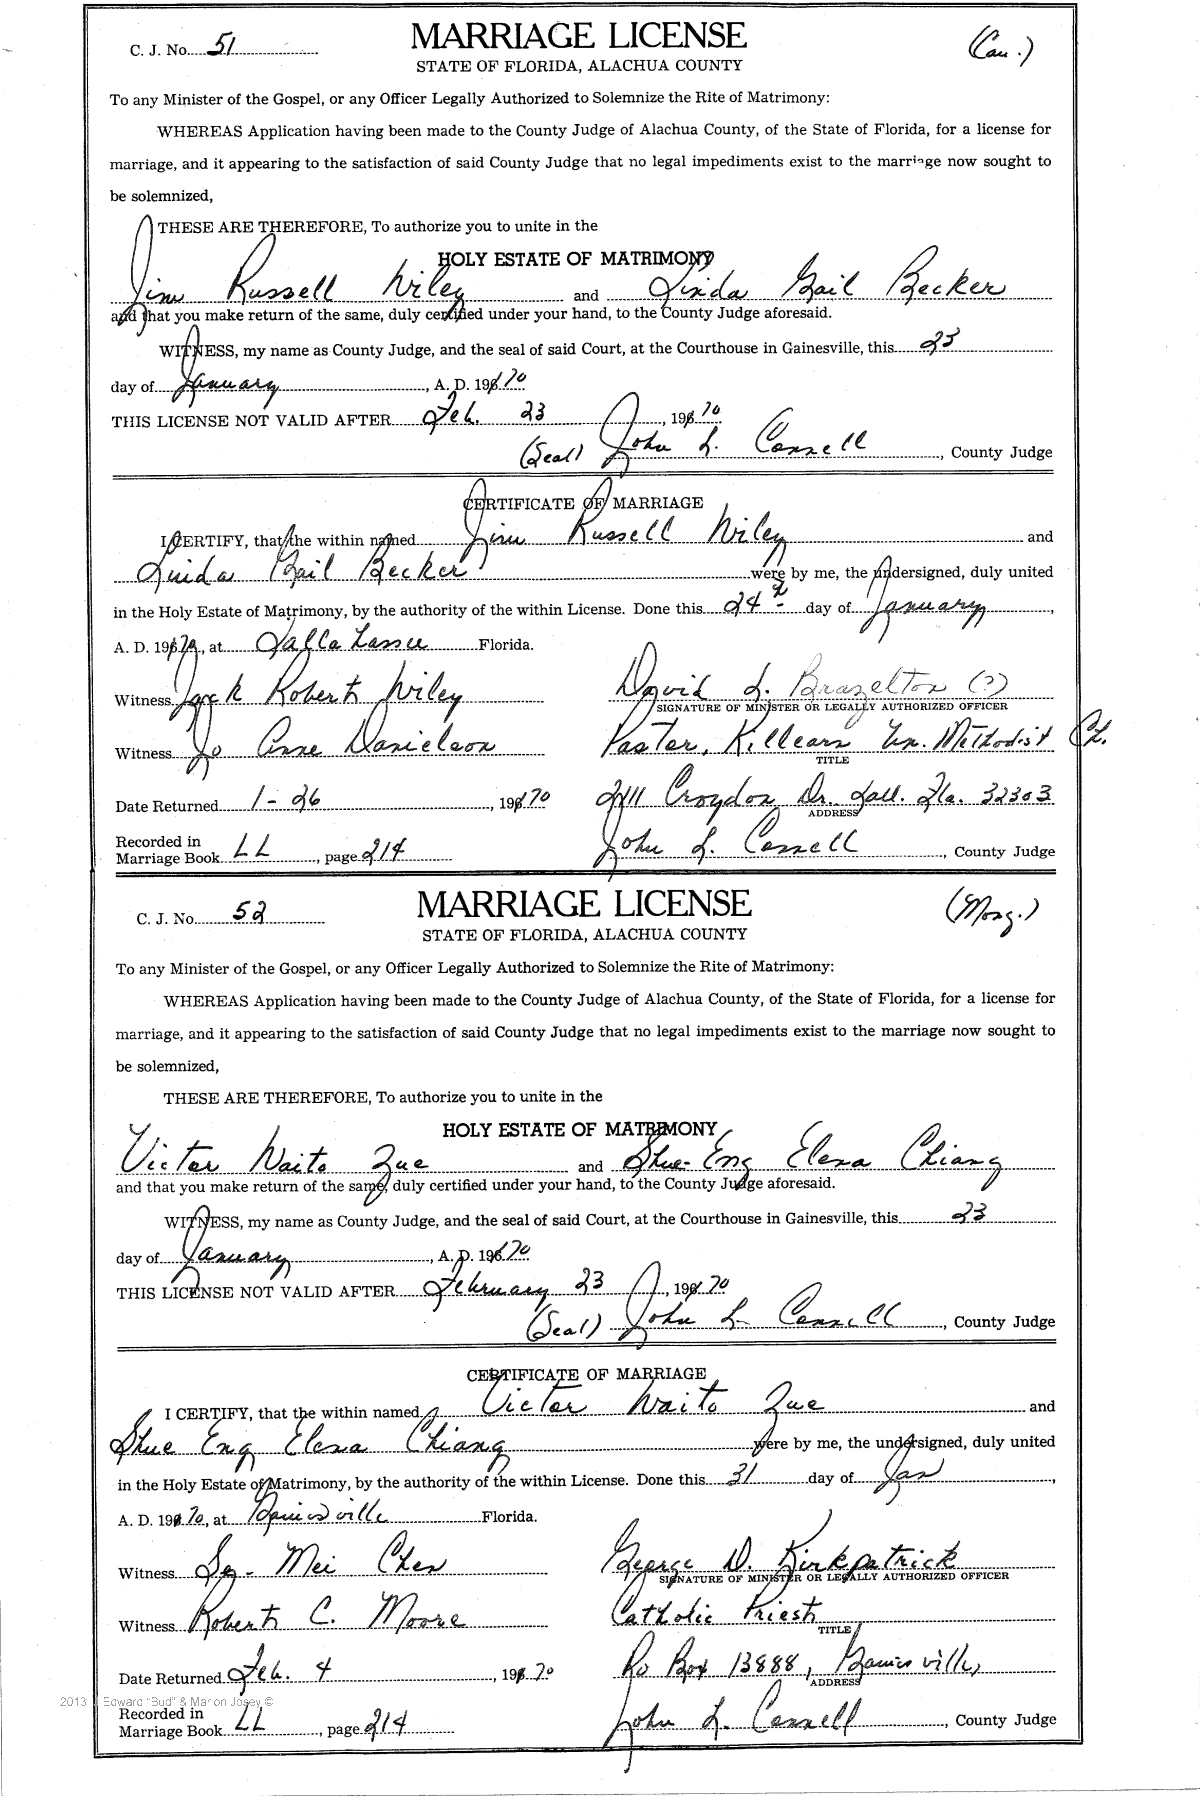 C. J. No. 51
MARRIAGE LICENSE
(Cau.)
STATE OF FLORIDA, ALACHUA COUNTY
To any Minister of the Gospel, or any Officer Legally Authorized to Solemnize the Rite of Matrimony:
WHEREAS Application having been made to the County Judge of Alachua County, of the State of Florida, for a license for
marriage, and it appearing to the satisfaction of said County Judge that no legal impediments exist to the marriage now sought to
be solemnized,
THESE ARE THEREFORE, To authorize you to unite in the
HOLY ESTATE OF MATRIMONY
Jim Russell Wiley and Linda Gail Becker
and that you make return of the same, duly certified under your hand, to the County Judge aforesaid.
WITNESS, my name as County Judge, and the seal of said Court, at the Courthouse in Gainesville, this 23
day of January, A. D. 1970
THIS LICENSE NOT VALID AFTER Feb. 23, 1970
(Seal) John L. Connell, County Judge
CERTIFICATE OF MARRIAGE
I CERTIFY, that the within named Jim Russell Wiley and
Linda Gail Becker were by me, the undersigned, duly united
in the Holy Estate of Matrimony, by the authority of the within License. Done this 24 day of January,
A. D. 1970, at Tallahassee Florida.
Witness Jack Robert Wiley
David L. Brazelton (?)
SIGNATURE OF MINISTER OR LEGALLY AUTHORIZED OFFICER
Witness Jo Anne Danielson
Pastor, Killearn Un. Methodist Ch.
TITLE
Date Returned 1-26, 1970
2711 Croydon Dr. Tall. Fla. 32303
ADDRESS
Recorded in
Marriage Book LL, page 214
John L. Connell, County Judge
C. J. No. 52
MARRIAGE LICENSE
(Mong.)
STATE OF FLORIDA, ALACHUA COUNTY
To any Minister of the Gospel, or any Officer Legally Authorized to Solemnize the Rite of Matrimony:
WHEREAS Application having been made to the County Judge of Alachua County, of the State of Florida, for a license for
marriage, and it appearing to the satisfaction of said County Judge that no legal impediments exist to the marriage now sought to
be solemnized,
THESE ARE THEREFORE, To authorize you to unite in the
HOLY ESTATE OF MATRIMONY
Victor Waito Zue and Shue-Eng Elena Chiang
and that you make return of the same, duly certified under your hand, to the County Judge aforesaid.
WITNESS, my name as County Judge, and the seal of said Court, at the Courthouse in Gainesville, this 23
day of January, A. D. 1970
THIS LICENSE NOT VALID AFTER February 23, 1970
(Seal) John L. Connell, County Judge
CERTIFICATE OF MARRIAGE
I CERTIFY, that the within named Victor Waito Zue and
Shue Eng Elena Chiang were by me, the undersigned, duly united
in the Holy Estate of Matrimony, by the authority of the within License. Done this 31 day of Jan,
A. D. 1970, at Gainesville Florida.
Witness Mei Chen
George D. Kirkpatrick
SIGNATURE OF MINISTER OR LEGALLY AUTHORIZED OFFICER
Witness Robert C. Moore
Catholic Priest
TITLE
Date Returned Feb. 4, 1970
Po Box 13888, Gainesville,
ADDRESS
2013 Edward "Bud" & Marion Josey ©
Recorded in
Marriage Book LL, page 214
John L. Connell, County Judge